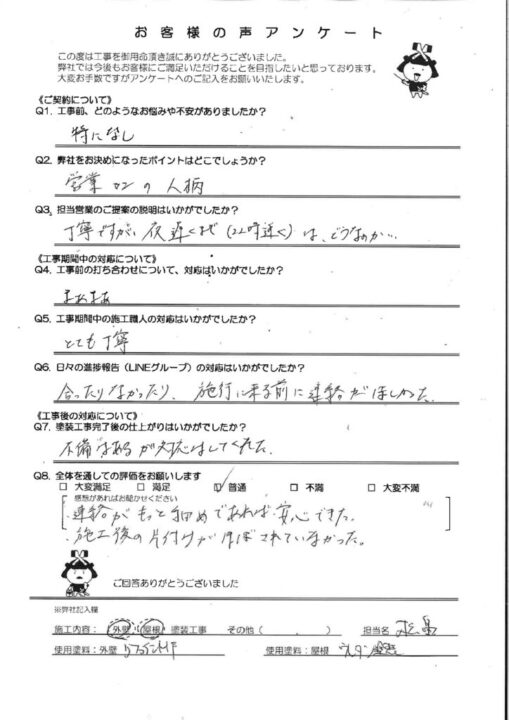 お客様の声アンケート
この度は工事を御用命頂き誠にありがとうございました。
弊社では今後もお客様にご満足いただけることを目指したいと思っております。
大変お手数ですがアンケートへのご記入をお願いいたします。
《ご契約について》
Q1. 工事前、どのようなお悩みや不安がありましたか?
特になし
Q2. 弊社をお決めになったポイントはどこでしょうか?
営業マンの人柄
Q3. 担当営業のご提案の説明はいかがでしたか?
丁寧ですが、夜遅くまで(22時近く)は、どうなのか…
《工事期間中の対応について》
Q4. 工事前の打ち合わせについて、対応はいかがでしたか?
まぁまぁ
Q5. 工事期間中の施工職人の対応はいかがでしたか?
とても丁寧
Q6. 日々の進捗報告(LINEグループ)の対応はいかがでしたか?
合ったりなかったり、施行に来る前に連絡がほしかった。
《工事後の対応について》
Q7. 塗装工事完了後の仕上がりはいかがでしたか?
不備はあるが対応はしてくれた。
Q8. 全体を通しての評価をお願いします
□ 大変満足 □ 満足 ☑ 普通 □ 不満 □ 大変不満
感想があればお聞かせください
・連絡がもっと細めであれば安心できた。
・施工後の片付けがされていなかった。
ご回答ありがとうございました
※弊社記入欄
施工内容: 外壁・屋根 塗装工事 その他( ) 担当名
使用塗料:外壁 使用塗料:屋根